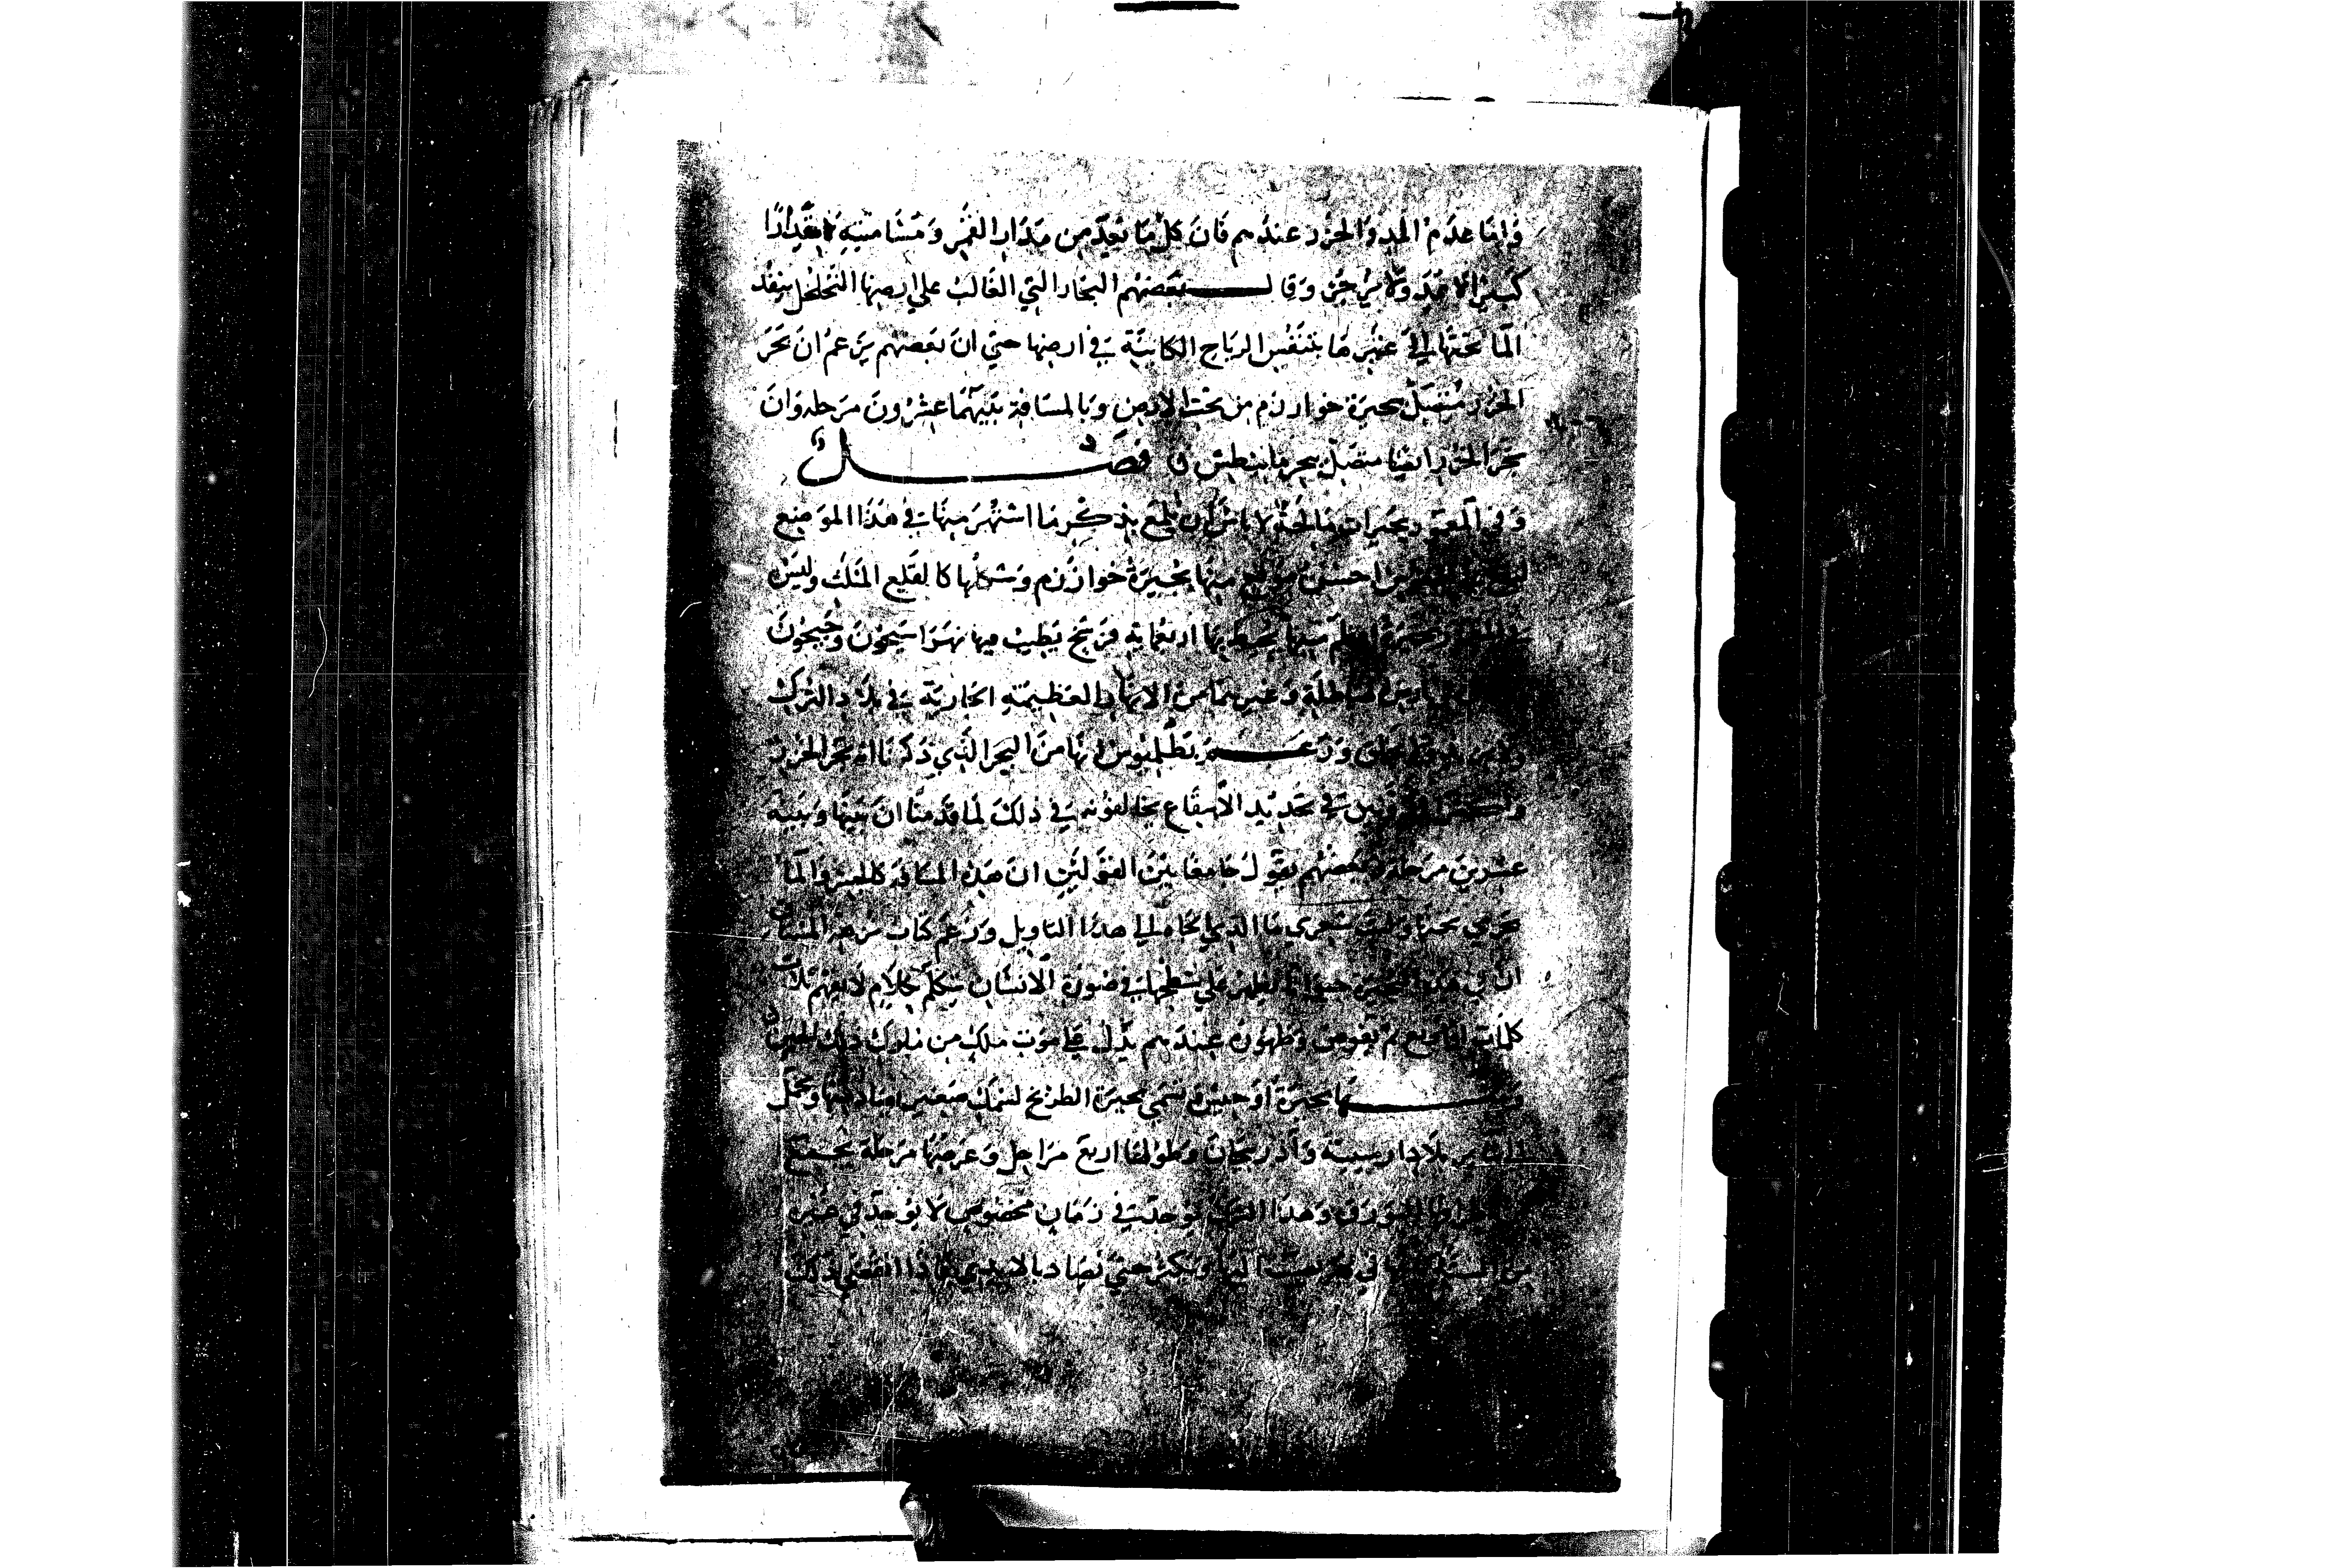 واما عدم المد والجزر عندهم فان كل ما بعد من مدار القمر ومسامتته بعدا
كثيرا لا يمد ولا يجزر وقال بعضهم البحار التي الغالب على ارضها التخلخل ينفذ
الما تحتها الى غير ما يتنفس الرياح الكاينة في ارضها حتى ان بعضهم يزعم ان بحر
الخزر متصل ببحيرة خوارزم من تحت الارض وبالمسافة بينهما عشرون مرحلة وان
بحر الخزر ايضا متصل ببحر ما نيطش فصل
وفي المعمور بحيرات مالحة لا باس ان نلمع بذكر ما اشتهر منها في هذا الموضع
احسن منها بحيرة خوارزم وشكلها كالقلع المثلث وليس
في بحيرة اعظم منها يحيط بها اربعماية فرسخ يصب فيها نهرا سيحون وجيحون
وغيرهما من الانهار العظيمة الجارية في بلاد الترك
وزعم بطلميوس انها من البحر الذي ذكرنا انه بحر الخزر
في تحديد الاصقاع يخالفونه في ذلك لما قدمنا ان بينها وبينه
عشرين مرحلة وبعضهم يقول جامعا بين القولين ان هذه المسافة كالجسر والما
يجري تحتها وليت شعري ما الذي الجاه الى هذا التاويل وزعم كتاب نزهة المشتاق
ان في هذه البحيرة حيوانا يظهر على سطحها في صورة الانسان يتكلم بكلام لا يفهم ثلاث
كلمات او اربع ثم يغوص وظهوره عندهم يدل على موت ملك من ملوك ذلك الحين
ومنها بحيرة تسمى بحيرة الطريخ لسمك صغير يصاد منها ويحمل
بلاد ارمينية واذربيجان وطولها اربع مراحل وعرضها مرحلة يجتمع
البورق وهذا السمك يوجد في زمان مخصوص لا يوجد في غيره
من السنة ياتي في نهر يصب اليها ويكثر حتى يصاد بالايدي فاذا انقضى ذلك